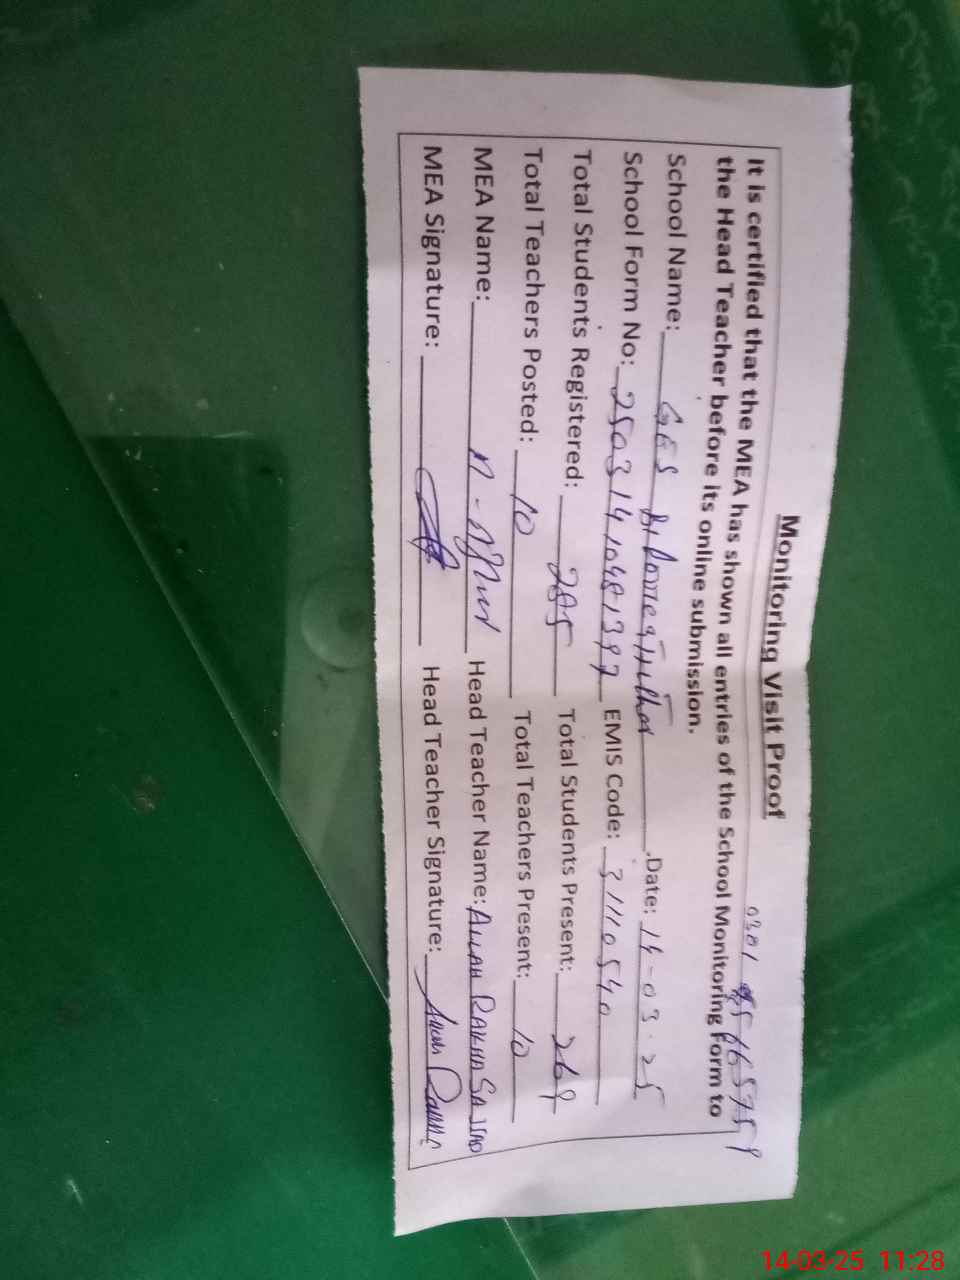 Monitoring Visit Proof
It is certified that the MEA has shown all entries of the School Monitoring Form to
the Head Teacher before its online submission.
School Name: GES Date: 14-03-25
School Form No: EMIS Code: 31110540
Total Students Registered: 285 Total Students Present: 269
Total Teachers Posted: 10 Total Teachers Present: 10
MEA Name: Head Teacher Name: ALLAH RAKHA SAJJAD
MEA Signature: Head Teacher Signature:
14-03-25 11:28